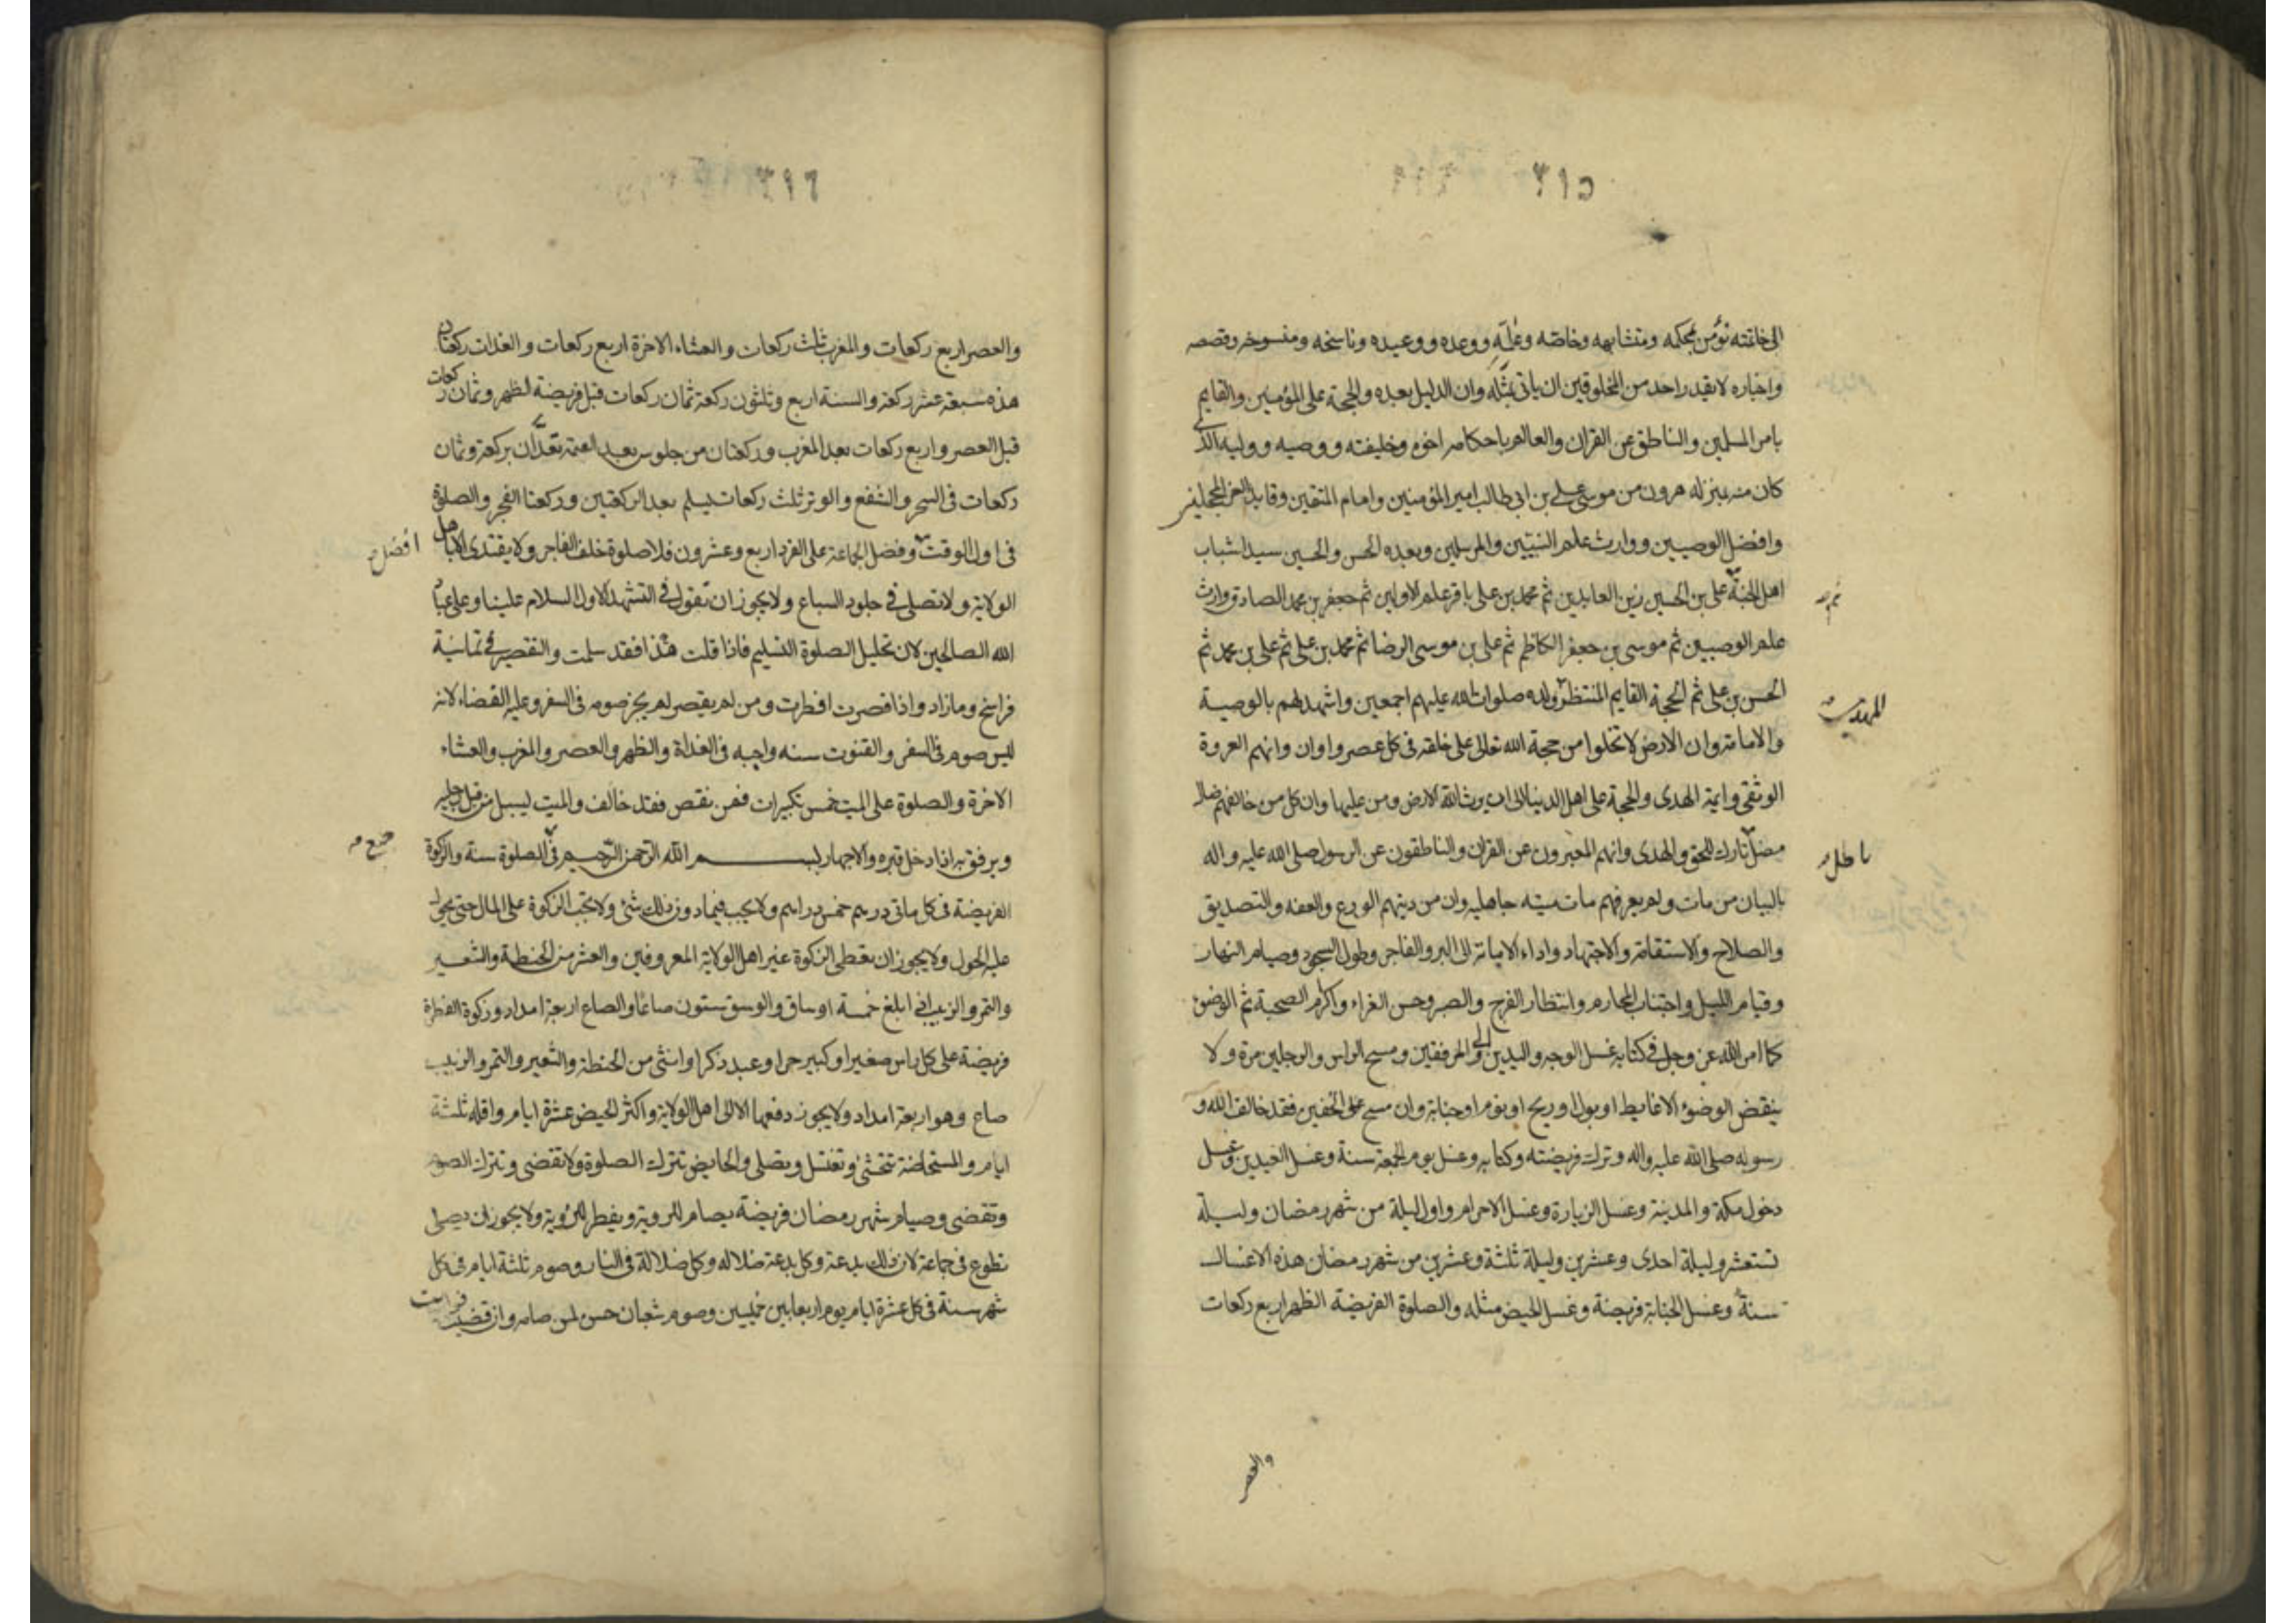 ٣١٥
الى خاتمته نؤمن بمحكمه ومتشابهه وخاصه وعامه ووعده ووعيده وناسخه ومنسوخه وقصصه
واخباره لا يقدر احد من المخلوقين ان ياتى بمثله وان الدليل بعده والحجة على المؤمنين والقايم
بامر المسلمين والناطق عن القران والعالم باحكامه اخوه وخليفته ووصيه ووليه الذى
كان منه بمنزله هرون من موسى على بن ابى طالب امير المؤمنين وامام المتقين وقايد الغر المحجلين
وافضل الوصيين ووارث علم النبيين والمرسلين وبعده الحسن والحسين سيدا شباب
اهل الجنة على بن الحسين زين العابدين ثم محمد بن على باقر علم الاولين ثم جعفر بن محمد الصادق وارث
ثم
علم الوصيين ثم موسى بن جعفر الكاظم ثم على بن موسى الرضا ثم محمد بن على ثم على بن محمد ثم
الحسن بن على ثم الحجة القايم المنتظر ولده صلوات الله عليهم اجمعين واشهد لهم بالوصية
المهدى
والامامة وان الارض لا تخلوا من حجة الله تعالى على خلقه فى كل عصر واوان وانهم العروة
الوثقى وايمة الهدى والحجة على اهل الدنيا الى ان يرث الله الارض ومن عليها وان كل من خالفهم ضال
مضل تارك للحق والهدى وانهم المعبرون عن القران والناطقون عن الرسول صلى الله عليه واله
باطل
بالبيان من مات ولم يعرفهم مات ميته جاهليه وان من دينهم الورع والعفه والتصديق
والصلاح والاستقامة والاجتهاد واداء الامانة الى البر والفاجر وطول السجود وصيام النهار
وقيام الليل واجتناب المحارم وانتظار الفرج والصبر وحسن العزاء واكرام الصحبة ثم الوضوء
كما امر الله عز وجل فى كتابه غسل الوجه واليدين الى المرفقين ومسح الراس والرجلين مرة ولا
ينقض الوضوء الا غايط او بول او ريح او نوم او جنابة وان مسح على الخفين فقد خالف الله و
رسوله صلى الله عليه واله وترك فريضته وكتابه وغسل يوم الجمعة سنة وغسل العيدين وغسل
دخول مكة والمدينة وغسل الزيارة وغسل الاحرام واول ليلة من شهر رمضان وليلة
تسعشر وليلة احدى وعشرين وليلة ثلثة وعشرين من شهر رمضان هذه الاغسال
سنة وغسل الجنابة فريضة وغسل الحيض مثله والصلوة الفريضة الظهر اربع ركعات
والعصر
٣١٦
والعصر اربع ركعات والمغرب ثلث ركعات والعشاء الاخرة اربع ركعات والغدات ركعتان
هذه سبعة عشر ركعة والسنة اربع وثلثون ركعة ثمان ركعات قبل فريضة الظهر وثمان ركعات
قبل العصر واربع ركعات بعد المغرب وركعتان من جلوس بعد العتمة تعدان بركعة وثمان
ركعات فى السحر والشفع والوتر ثلث ركعات يسلم بعد الركعتين وركعتا الفجر والصلوة
فى اول الوقت وفضل الجماعة على الفرد اربع وعشرون فلا صلوة خلف الفاجر ولا يقتدى الا باهل
افضل
الولاية ولا تصلى فى جلود السباع ولا يجوز ان تقول فى التشهد الاول السلام علينا وعلى عباد
الله الصالحين لان تحليل الصلوة التسليم فاذا قلت هذا فقد سلمت والتقصير فى ثمانية
فراسخ وما زاد واذا قصرت افطرت ومن لم يقصر لم يجز صومه فى السفر وعليه القضاء لانه
ليس صوم فى السفر والقنوت سنه واجبه فى الغداة والظهر والعصر والمغرب والعشاء
الاخرة والصلوة على الميت خمس تكبيرات فمن نقص فقد خالف والميت ليسل من قبل رجليه
ويرفق به اذا دخل قبره والاجهار ببسم الله الرحمن الرحيم فى الصلوة سنة والزكوة
جميع
الفريضة فى كل ماتى درهم خمس دراهم ولا يجب فيما دون ذلك شئ ولا تجب الزكوة على المال حتى يحول
عليه الحول ولا يجوز ان تعطى الزكوة غير اهل الولاية المعروفين والعشر من الحنطة والشعير
والتمر والزبيب اذا بلغ خمسة اوساق والوسق ستون صاعا والصاع اربعة امداد وزكوة الفطرة
فريضة على كل راس صغير او كبير حر او عبد ذكر او انثى من الحنطة والشعير والتمر والزبيب
صاع وهو اربعة امداد ولا يجوز دفعها الا الى اهل الولاية واكثر الحيض عشرة ايام واقله ثلثة
ايام والمستحاضة تحتشى وتغتسل وتصلى والحايض تترك الصلوة ولا تقضى وتترك الصوم
وتقضى وصيام شهر رمضان فريضة يصام للروية ويفطر للروية ولا يجوز ان يصلى
تطوع فى جماعة لان ذلك بدعة وكل بدعة ضلاله وكل ضلالة فى النار وصوم ثلثة ايام فى كل
شهر سنة فى كل عشرة ايام يوم اربعا بين خميسين وصوم شعبان حسن لمن صامه وان قضيت